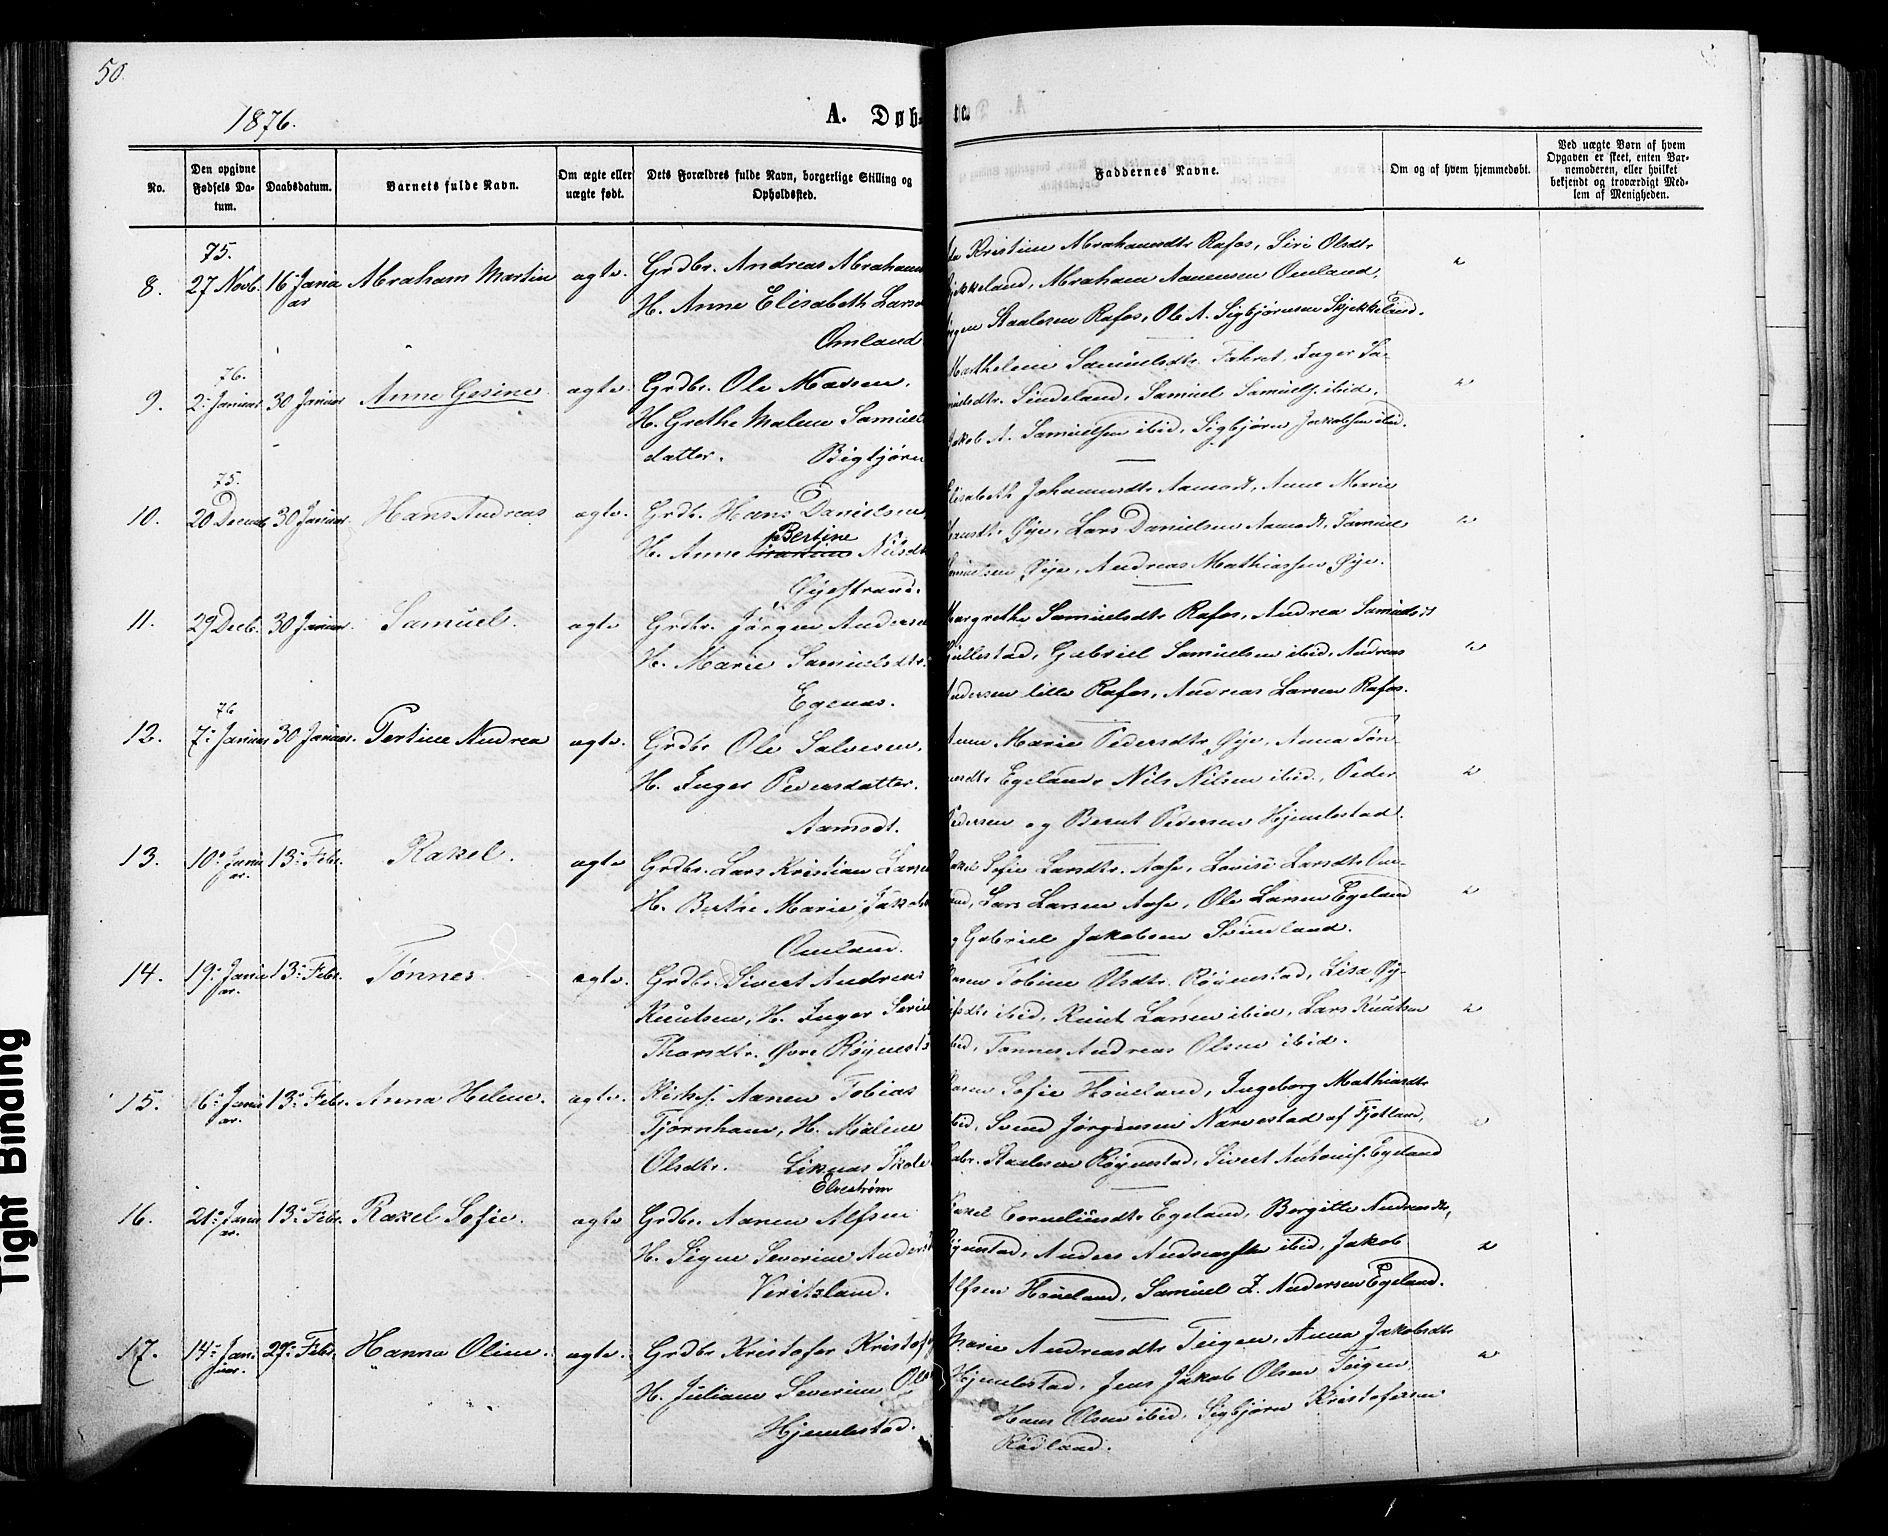 50.
1876.
A. Døb-
te.
No.
Den opgivne Fødsels Da-tum.
Daabsdatum.
Barnets fulde Navn.
Om ægte eller uægte født.
Dets Forældres fulde Navn, borgerlige Stilling og Opholdssted.
Faddernes Navne.
Om og af hvem hjemmedøbt.
Ved uægte Børn af hvem Opgaven er skeet, enten Bar-nemoderen, eller hvilket bekjendt og troværdigt Med-lem af Menigheden.
75.
8. 27 Novb. 16 Janu ar Abraham Martin ægte. Grdbr. Andreas Abraham
H. Anne Elisabeth Lars
Omland
Kristine Abrahamsdtr Rafos, Siri Olsdtr
Abraham Aanensen Omland,
Staalesen Rafos, Ole A. Sigbjørnsen Skjekkeland.
76.
9. 2. Januar 30 Januar Anne Gesine ægte. Grdbr. Ole
H. Grethe Malene Samuels
datter. Bigtjørn
Marthelene Samuelsdtr. Inger Sa-
Sindeland, Samuel Samuels. ibid,
Jakob A. Samuelsen ibid, Sigbjørn Jakobsen ibid.
75.
10. 20 30 Januar. Hans Andreas ægte. Grdb. Hans Danielsen,
Bertine
H. Anne Nilsdt
Øyestrand.
Elisabeth Aamodt, Anne Marie
Øye, Lars Danielsen Aamodt, Samuel
Øye, Andreas Mathiassen Øye.
11. 29 Decb. 30 Januar. Samuel. ægte Grdbr. Jørgen Anders
H. Marie Samuelsdtr.
Egenæs.
Margrethe Samuelsdtr Rafos, Andrea Samuelsdt
Gullestad, Gabriel Samuelsen ibid, Andreas
Andersen lille Rafos, Andreas Larsen Rafos.
76
12. 7. Januar 30 Januar. Pertine Andrea ægte. Grdbr Ole Salvesen,
H. Inger Pedersdatter.
Aamodt.
Anne Marie Pedersdtr Øye, Anna Tøn-
Egeland, Nils Nilsen ibid., Peder
Pedersen og Bernt Pedersen Hjemlestad.
13. 10. Janu ar. 13. Febr. Rakel. ægte Grdbr. Lars Kristian Larsen
H. Berthe Marie Jakobs
Omland.
Rakel Sofie Larsdtr. Aase, Lovise Larsdtr Om-
land, Lars Larsen Aase, Ole Larsen Egeland
og Gabriel Jakobsen Svindland.
14. 19. Janu ar. 13. Febr. Tønnes. ægte. Grdbr. Sivert Andreas
Knutsen, H. Inger Serine
Øvre Røynest
Karen Tobine Olsdtr. Røynestad, Lisa Øy-
ibid, Knut Larsen ibid, Lars Knutsen
ibid, Tønnes Andreas Olsen ibid.
15. 16. Janu ar. 13. Febr. Anna Helene. ægte. Kirkes. Aanen Tobias
Tjørnham, H. Malene
Olsdtr. Liknæs Skole
Sofie Houeland, Ingeborg Mathiasdtr
ibid, Svend Jørgensen Narvestad af Fjotland,
Gabr. Staalesen Røynestad, Sivert Antonis. Egeland
Elvestrøm
16. 21. Janu ar. 13. Febr. Rakel Sofie. ægte Grdbr. Aanen Alfsen
H. Signe Severine Anders
Veritsland.
Rakel Corneliusdtr Egeland, Bergitte Andreasdtr,
Røynestad, Anders Andreassen ibid, Jakob
Alfsen Houeland, Samuel Z. Andersen Egeland.
17. 14. Janu uar. 27. Febr. Hanna Oline. ægte. Grdbr Kristofer Kristof
H. Juliane Severine Ols
Hjemlestad.
Marie Andreasdtr Teigen, Anna Jakobsdtr
Hjemlestad, Jens Jakob Olsen Teigen,
Hans Olsen ibid, Sigbjørn Kristofersen
Rødland.
Tight Binding